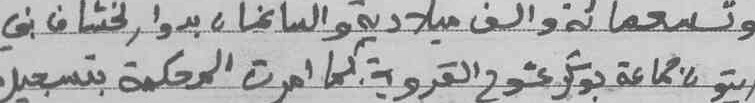 وتسعمائة والف ميلادية والساعنا، بدوار لخشاف بني
بتو، جماعة بوكرعتوح القروية. كما امرت المحكمة بتسجيل